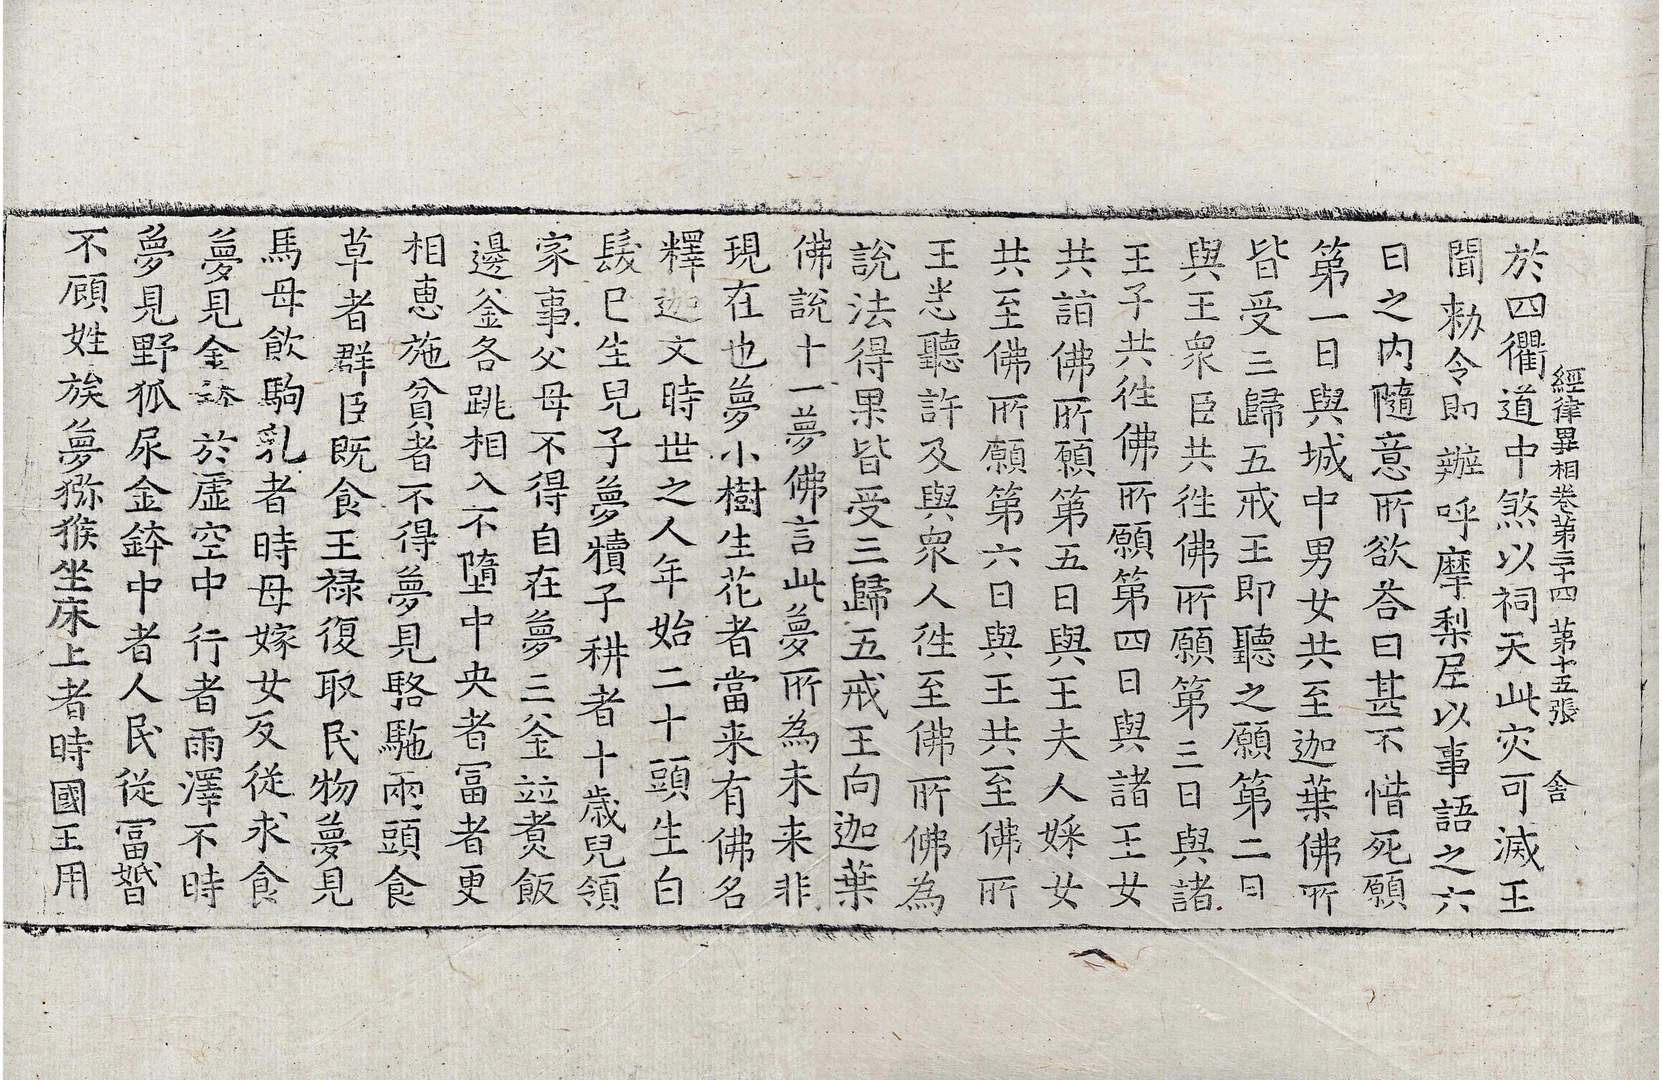 經律異相卷第三十四 第十五張 舍
於四衢道中煞以祠天此灾可滅王
聞勑令即辦呼摩梨居以事語之六
日之內隨意所欲荅曰甚不惜死願
第一日與城中男女共至迦葉佛所
皆受三歸五戒王即聽之願第二日
與王衆臣共徃佛所願第三日與諸
王子共徃佛所願第四日與諸王女
共詣佛所願第五日與王夫人婇女
共至佛所願第六日與王共至佛所
王恙聽許及與衆人徃至佛所佛為
說法得果皆受三歸五戒王向迦葉
佛說十一夢佛言此夢所為未来非
現在也夢小樹生花者當来有佛名
釋迦文時世之人年始二十頭生白
髮巳生兒子夢犢子耕者十歲兒領
家事父母不得自在夢三釜竝煑飯
邊釜各跳相入不墮中央者冨者更
相恵施貧者不得夢見駱駞兩頭食
草者群臣既食王禄復取民物夢見
馬母飲駒乳者時母嫁女反従求食
夢見金鉢於虛空中行者雨澤不時
夢見野狐尿金鉢中者人民従冨婚
不顧姓族夢猕猴坐床上者時國王用